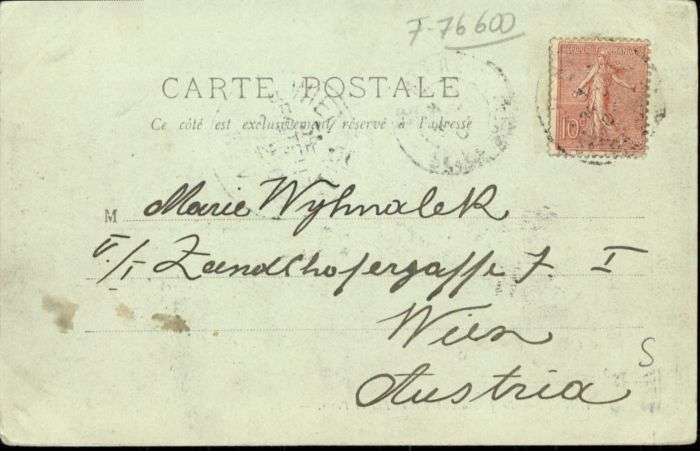 7-76600
CARTE POSTALE
Ce côté est exclusivement réservé à l'adresse
10
M Marie Wyhnalek
V/I Zandlhofergasse 7. I
Wien
Austria
S